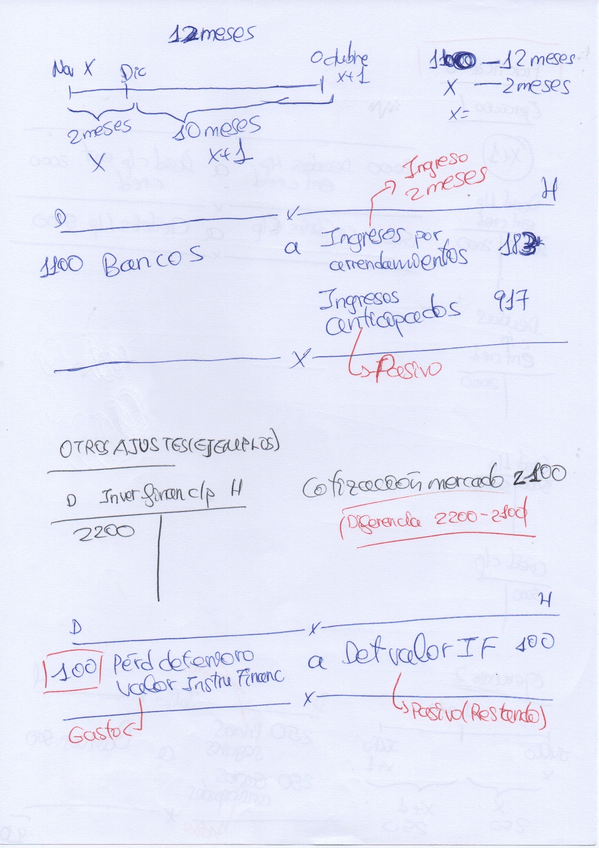 12meses
Nov X Dic Octubre
X+1
1100 — 12 meses
X — 2 meses
X=
2meses 10 meses
X X+1
Ingreso
2 meses
D X H
1100 Bancos a Ingresos por
arrendamientos 183
Ingresos
anticipados 917
X
Pasivo
OTROS AJUSTES (EJEMPLOS)
D Inver financ/p H
2200
Cotización mercado 2100
Diferencia 2200-2100
D X H
100 Pérd deterioro
valor Instru Financ
a Det valor IF 100
X
Gasto
Pasivo (Restando)